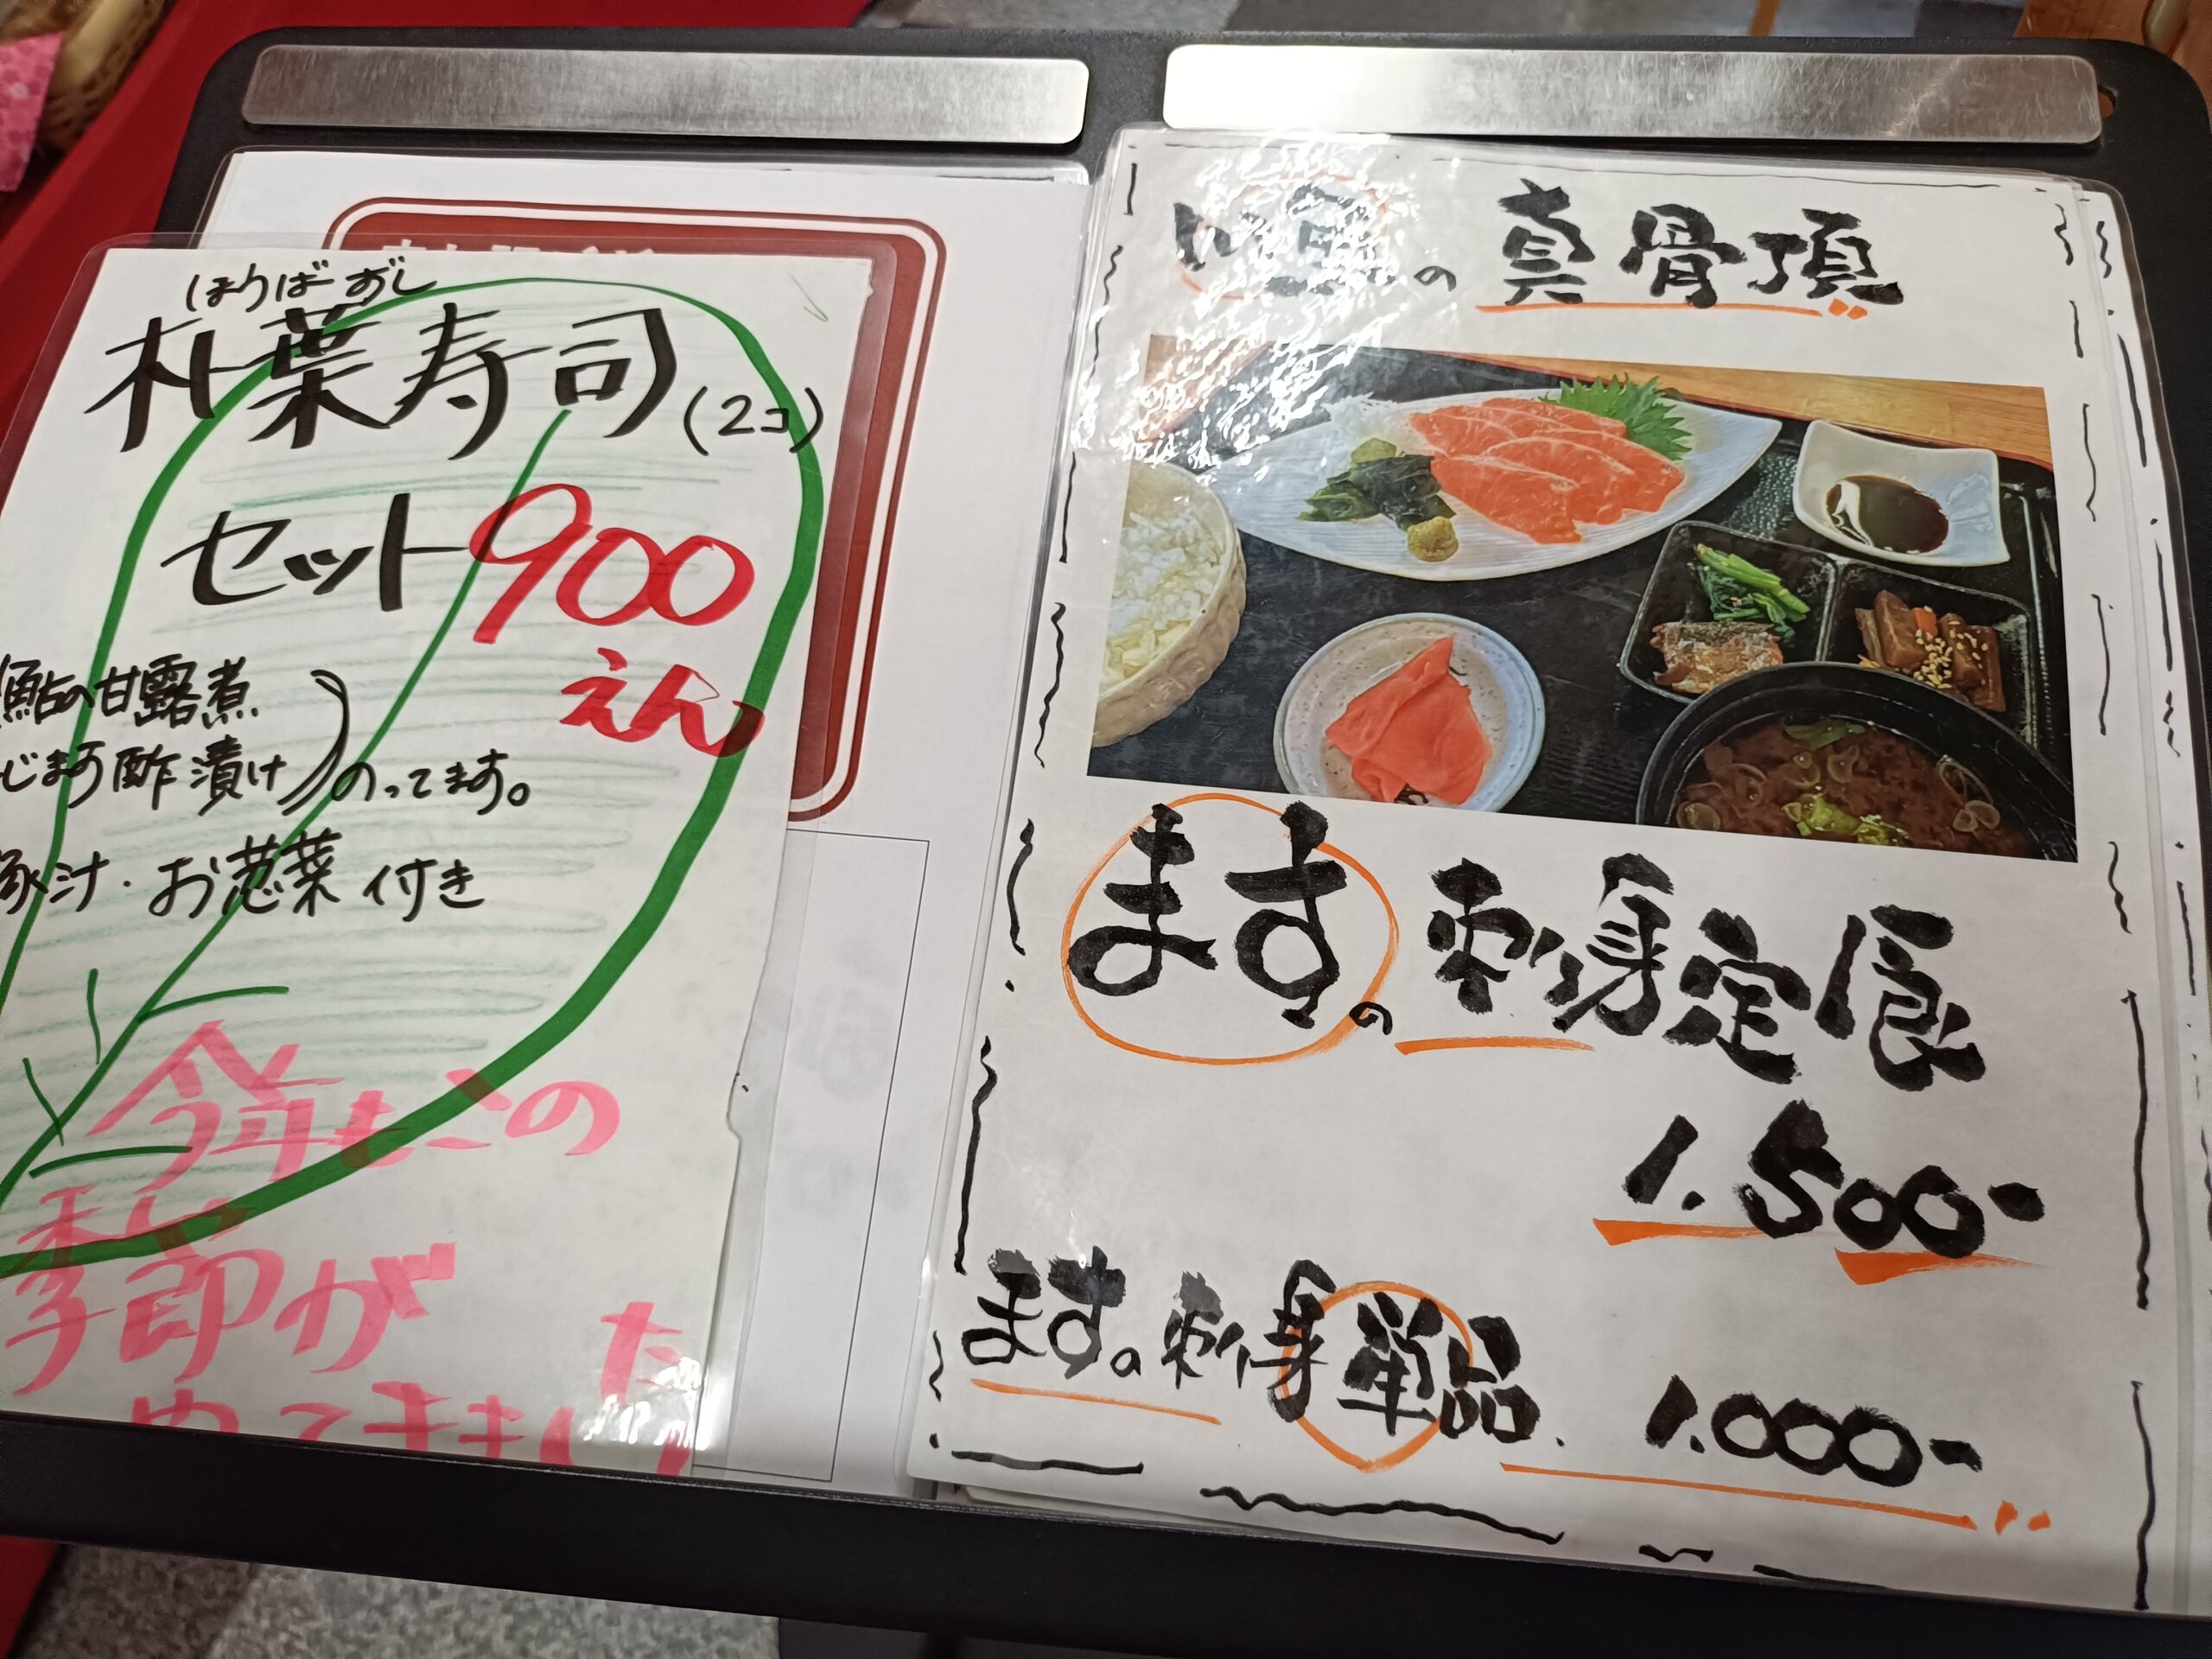 ほうばずし
朴葉寿司(2コ)
セット900
えん
鮎の甘露煮
じます酢漬け のってます。
豚汁・お惣菜付き
今年もこの
季節が
やってきました
川魚の真骨頂
ますの刺身定食
1.500-
ますの刺身単品. 1.000-